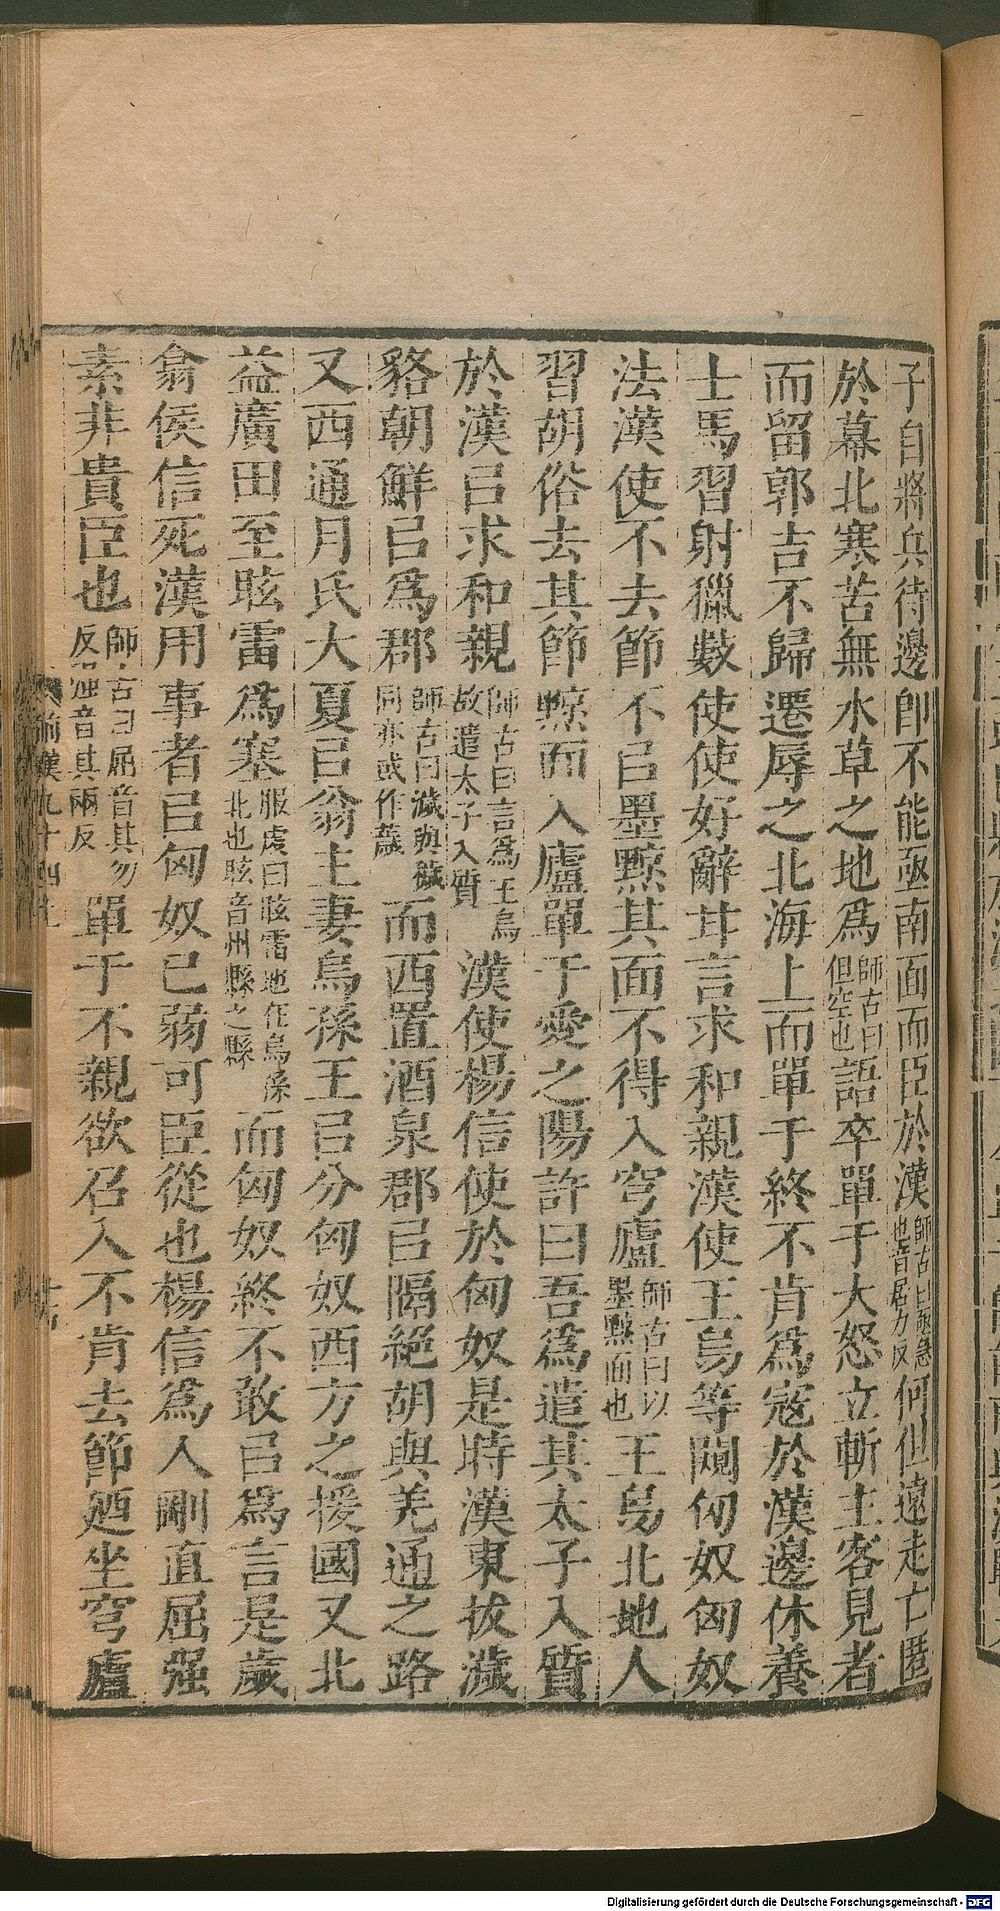 子自將兵待邊卽不能亟南面而臣於漢師古曰亟急也音居力反何但遠走亡匿
於幕北寒苦無水草之地爲師古曰但空也語卒單于大怒立斬主客見者
而留郭吉不歸遷辱之北海上而單于終不肯爲寇於漢邊休養
士馬習射獵數使使好辭甘言求和親漢使王烏等闚匈奴匈奴
法漢使不去節不㠯墨黥其面不得入穹廬師古曰以墨黥面也王烏北地人
習胡俗去其節黥面入廬單于愛之陽許曰吾爲遣其太子入質
於漢㠯求和親師古曰言爲王烏故遣太子入質漢使楊信使於匈奴是時漢東拔濊
貉朝鮮㠯爲郡師古曰濊與穢同亦或作薉而西置酒泉郡㠯隔絶胡與羌通之路
又西通月氏大夏㠯翁主妻烏孫王㠯分匈奴西方之援國又北
益廣田至眩雷爲塞服虔曰眩雷地在烏孫北也眩音州縣之縣而匈奴終不敢㠯爲言是歲
翕侯信死漢用事者㠯匈奴已弱可臣從也楊信爲人剛直屈强
素非貴臣也師古曰屈音其勿反强音其兩反單于不親欲召入不肯去節廼坐穹廬
前漢九十四上
Digitalisierung gefördert durch die Deutsche Forschungsgemeinschaft - DFG